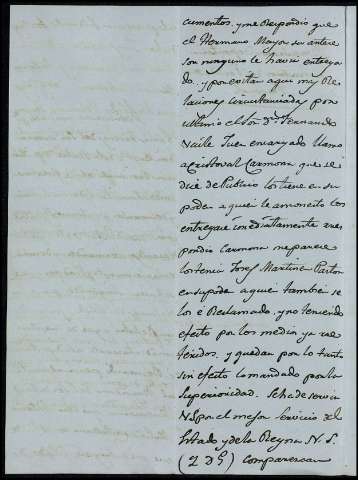 cumentos. y me Respondio que
el Hermano Mayor su antese
sor ninguno le havia entrega
do. y por estar aqui muy Re
laciones
ultimo el Sor Dn Fernando
Juez encargado llamo
a Cristoval Carmona que se
dice de Publico los tiene en su
poder a que le amonesto los
entregue inmediatamente a res
pondio Carmona me parece
los tenia Josef Martinez Pastor
en su poder a quei tambien se
los é Reclamado. y no teniendo
efecto por los medios ya re
feridos. y quedan por lo tanto
sin efecto lo mandado por la
Superioridad. Se ha de servir
V.S. por el mejor Servicio del
Estado y de la Reyna N. S.
(2 D G) comparescan